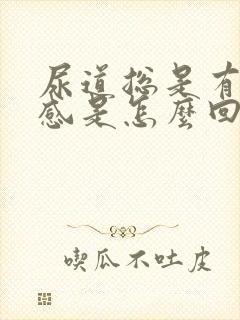 尿道总是有
感是怎麼回
喫瓜不吐皮